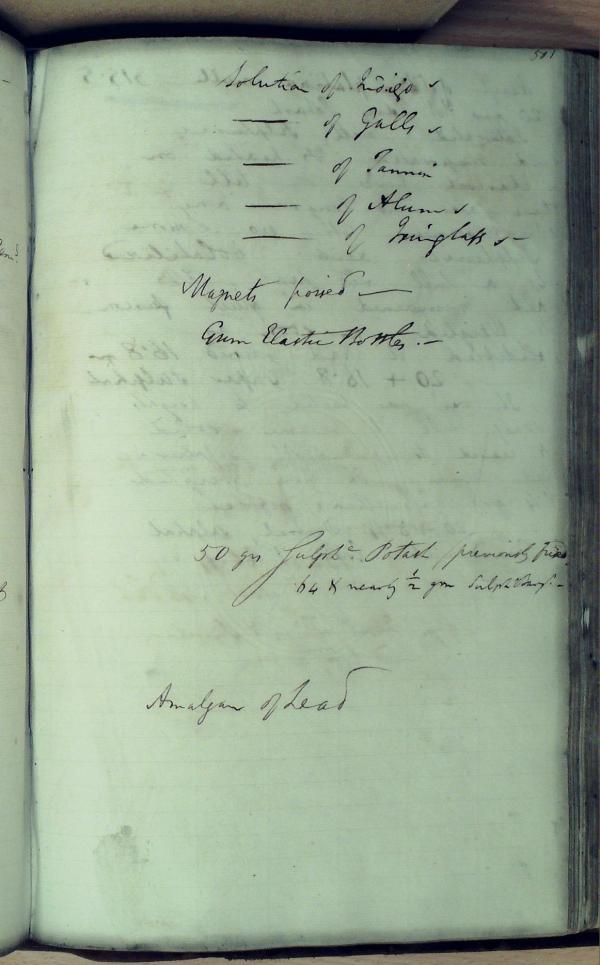 501
Solution of Indigo ✓
—— of Galls ✓
—— of Tannin
—— of Alum ✓
—— of Isinglass ✓ —
Magnets poised —
Gum Elastic Bottles. —
50 grs Sulphc. Potash previously fused
64 & nearly 1/2 grn Sulph
Amalgam of Lead